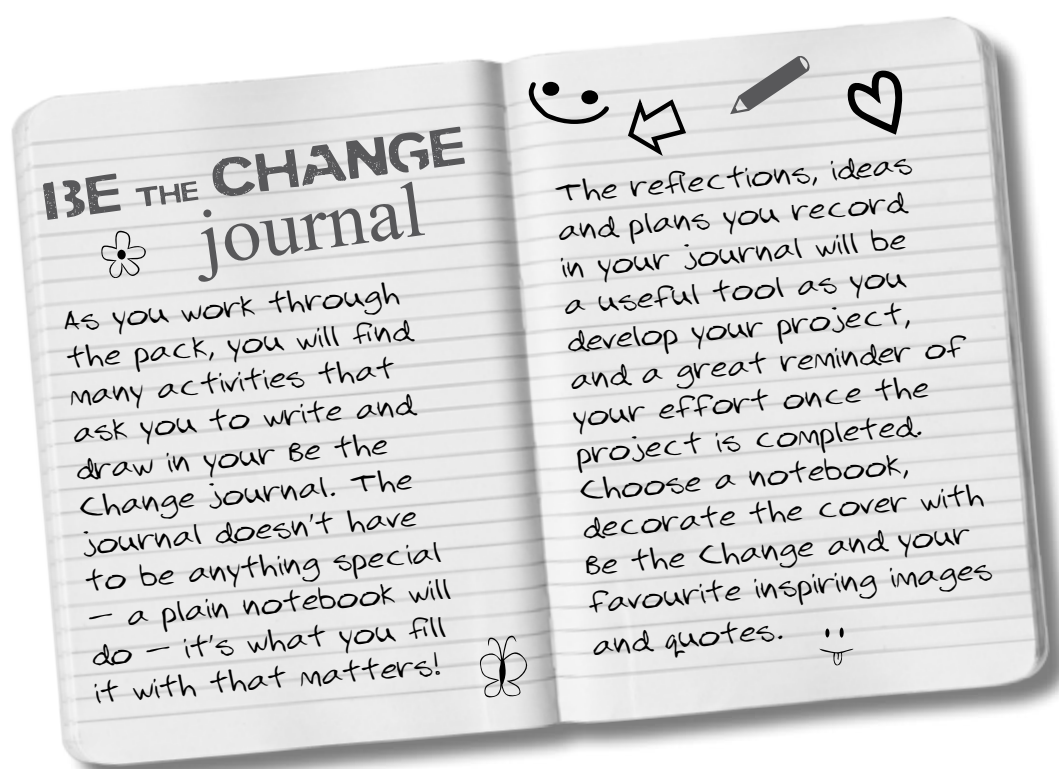 BE THE CHANGE
journal
As you work through
the pack, you will find
many activities that
ask you to write and
draw in your Be the
Change journal. The
journal doesn't have
to be anything special
– a plain notebook will
do – it's what you fill
it with that matters!
The reflections, ideas
and plans you record
in your journal will be
a useful tool as you
develop your project,
and a great reminder of
your effort once the
project is completed.
Choose a notebook,
decorate the cover with
Be the Change and your
favourite inspiring images
and quotes.